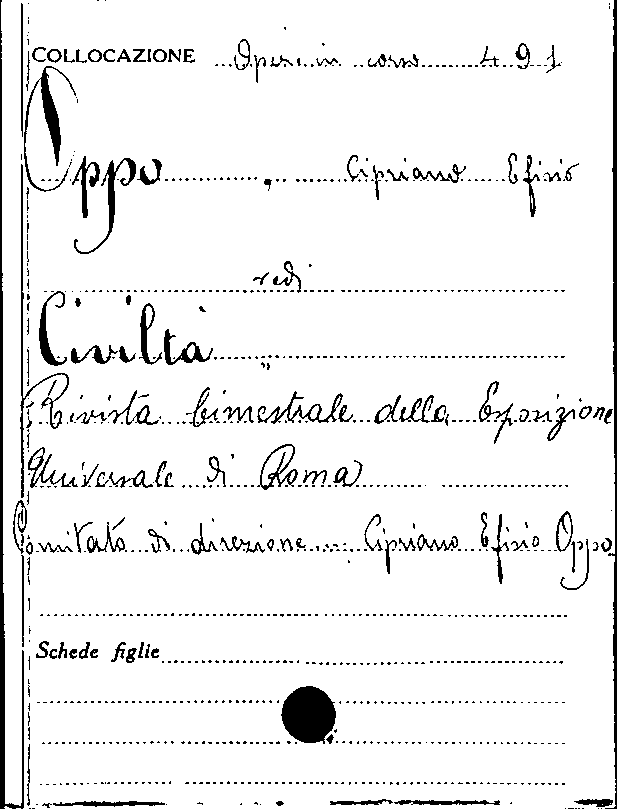 COLLOCAZIONE Opere in corso 491
Oppo, Cipriano Efisio
vedi
Civiltà "
Rivista bimestrale della Esposizione
Universale di Roma
Comitato di direzione ... Cipriano Efisio Oppo
Schede figlie